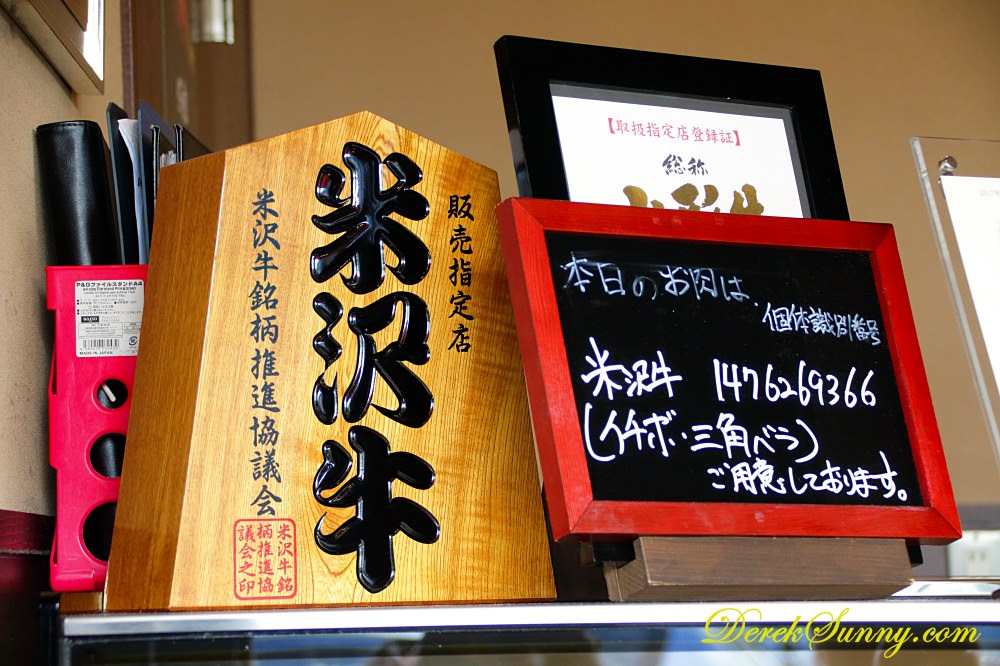 販売指定店
米沢牛
米沢牛銘柄推進協議会
米沢牛銘
柄推進協
議会之印
【取扱指定店登録証】
総称
本日のお肉は、
個体識別番号
米沢牛 1476269366
(イチボ・三角ベラ)
ご用意しております。
P&GファイルスタンドA4
MADE IN JAPAN
DerekSunny.com